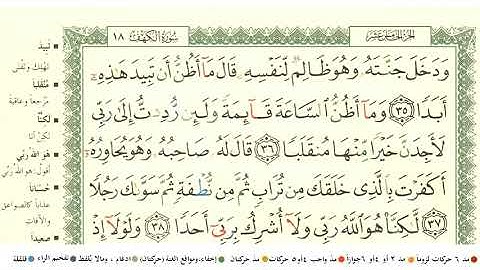 الجزء الخامس عشر
سورة الكهف ١٨
وَدَخَلَ جَنَّتَهُۥ وَهُوَ ظَالِمٌ لِّنَفْسِهِۦ قَالَ مَآ أَظُنُّ أَن تَبِيدَ هَٰذِهِۦٓ
أَبَدًا ٣٥ وَمَآ أَظُنُّ ٱلسَّاعَةَ قَآئِمَةً وَلَئِن رُّدِدتُّ إِلَىٰ رَبِّى
لَأَجِدَنَّ خَيْرًا مِّنْهَا مُنقَلَبًا ٣٦ قَالَ لَهُۥ صَاحِبُهُۥ وَهُوَ يُحَاوِرُهُۥٓ
أَكَفَرْتَ بِٱلَّذِى خَلَقَكَ مِن تُرَابٍ ثُمَّ مِن نُّطْفَةٍ ثُمَّ سَوَّىٰكَ رَجُلًا
٣٧ لَّٰكِنَّا۠ هُوَ ٱللَّهُ رَبِّى وَلَآ أُشْرِكُ بِرَبِّىٓ أَحَدًا ٣٨ وَلَوْلَآ إِذْ
تبيد
تهلك وتفنى
منقلبا
مرجعا وعاقبة
لكنا
لكن أنا
هو الله ربي
أقول: هو الله ربي
حسبانا
عذابا كالصواعق
والآفات
صعيدا
مد ٦ حركات لزوما
مد ٢ أو ٤ أو ٦ جوازا
مد واجب ٤ أو ٥ حركات
مد حركتان
إخفاء، ومواقع الغنة (حركتان)
ادغام، وما لا يلفظ
تفخيم الراء
قلقلة